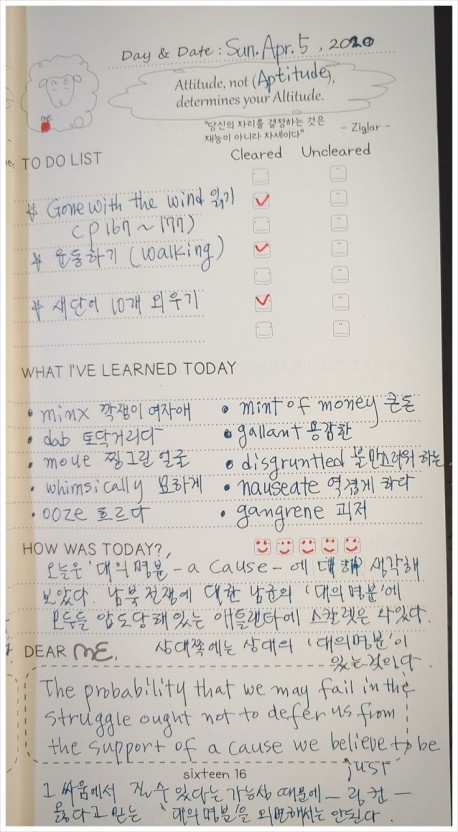 Day & Date : Sun. Apr. 5, 2020
Attitude, not (Aptitude),
determines your Altitude.
"당신의 자리를 결정하는 것은
재능이 아니라 자세이다"
- Ziglar -
TO DO LIST
Cleared Uncleared
* Gone with the wind 읽기
(p167~177)
* 운동하기 (walking)
* 새단어 10개 외우기
WHAT I'VE LEARNED TODAY
• minx 깍쟁이 여자애 • mint of money 큰돈
• dab 토닥거리다 • gallant 용감한
• moue 찡그린 얼굴 • disgruntled 불만스러워 하는
• whimsically 묘하게 • nauseate 역겹게 하다
• ooze 흐르다 • gangrene 괴저
HOW WAS TODAY?,
오늘은 '대의명분 - a cause - 에 대해 생각해
보았다. 남북전쟁에 대한 남군의 '대의명분'에
모두들 압도당해 있는 애틀랜타에 스칼렛은 와있다.
상대쪽에는 상대의 '대의명분'이
있는것이다.
DEAR ME,
The probability that we may fail in the
struggle ought not to defer us from
the support of a cause we believe to be
just
sixteen 16
그 싸움에서 질수 있다는 가능성 때문에 - 링컨 -
옳다고 믿는 '대의명분'을 외면해서는 안된다.